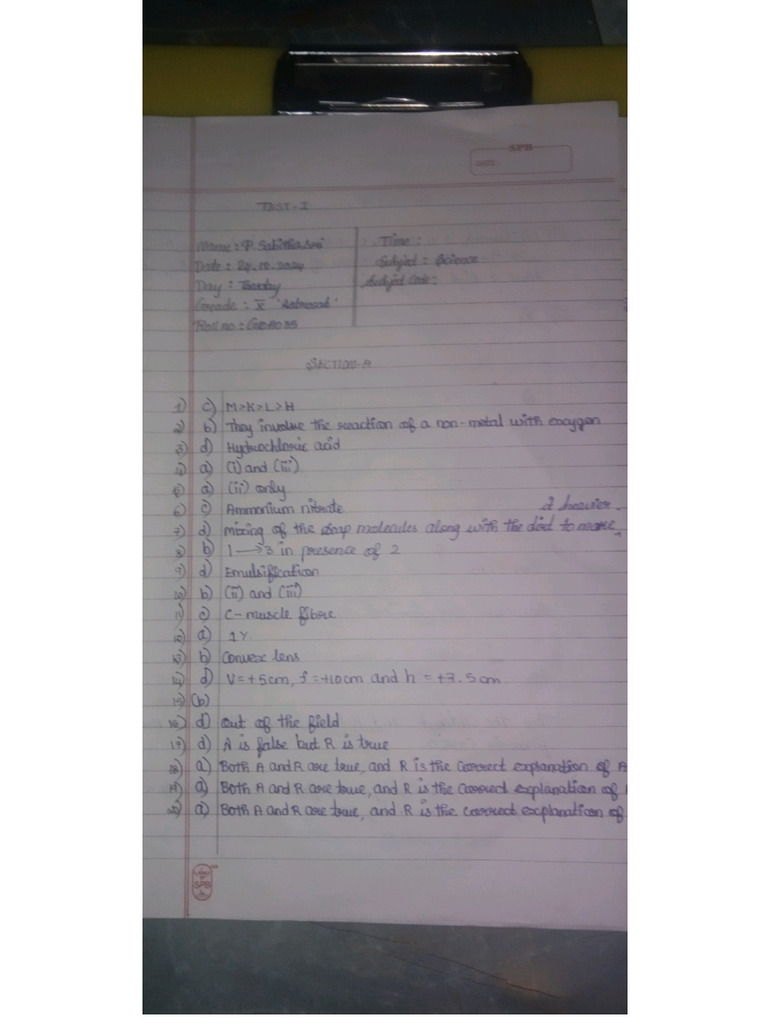 SPB
DATE:
TEST-I
Name: P. Sabitha Sri
Time:
Date: 24.10.2024
Subject: Science
Day:
Subject Code:
Grade: X
Roll no:
SECTION-A
1) c) M>K>L>H
2) b) They involve the reaction of a non-metal with oxygen
3) d) Hydrochloric acid
4) a) (i) and (iii)
5) a) (ii) only
6) c) Ammonium nitrate
7) d) mixing of the soap molecules along with the dirt to make
it heavier.
8) b) 1→3 in presence of 2
9) d) Emulsification
10) b) (ii) and (iii)
11) c) C-muscle fibre
12) a) 1Y
13) b) Convex lens
14) d) V=+5cm, f=+10cm and h=+7.5cm
15) (b)
16) d) out of the field
17) d) A is false but R is true
18) a) Both A and R are true, and R is the correct explanation of A
19) a) Both A and R are true, and R is the correct explanation of
20) a) Both A and R are true, and R is the correct explanation of
SPB